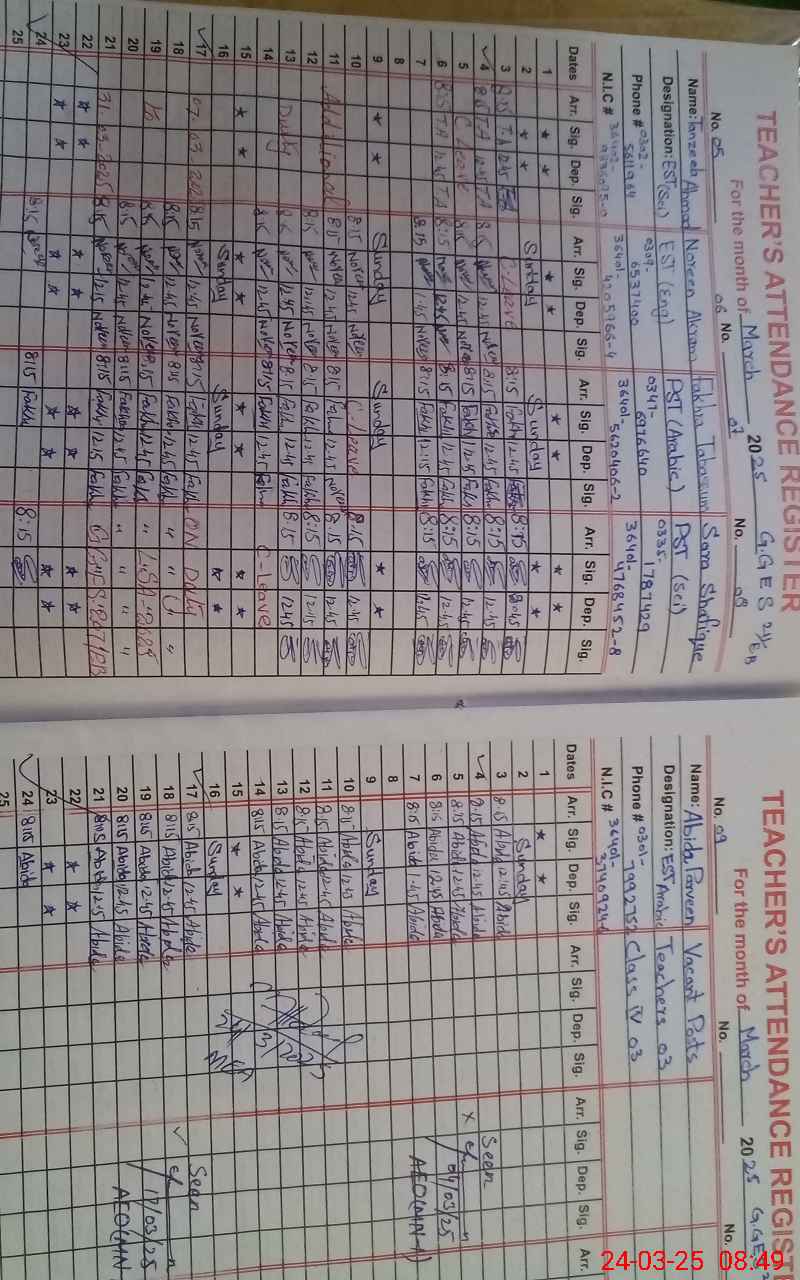 TEACHER'S ATTENDANCE REGISTER
For the month of March 2025 G.GES 21/EB
No. 05 06 No. 07 No. 08
Name: Tanzeela Ahmad Noreen Akram Fakhra Tabassum Sara Shafique
Designation: EST(Sci) EST (Eng) PST (Arabic) PST (Sci)
Phone # 0302-5611964 0309-6537400 0347-6976640 0335-1787429
N.I.C # 36402- 36401-4205966-4 36401-5620406-2 36401-4768452-8
Dates Arr. Sig. Dep. Sig. Arr. Sig. Dep. Sig. Arr. Sig. Dep. Sig. Arr. Sig. Dep. Sig.
1 * * * * * * * *
2 * * Sunday Sunday * *
3 8:15 T.A 12:45 C.Leave 8:15 Fakhr 12:45 8:15 12:45
4 8:15 T A 12:45 T A 8:15 12:45 8:15 Fakhr 12:45 Fakhr 8:15 12:45
5 C Leave 8:15 12:45 8:15 Fakhr 12:45 Fakhr 8:15 12:45
6 8:15 T A 12:45 T A 8:15 12:45 8:15 Fakhr 12:45 Fakhr 8:15 12:45
7 8:15 1:45 Noreen 8:15 Fakhr 12:15 Fakhr 8:15 12:45
8
9 * * Sunday Sunday * *
10 8:15 Noreen 12:45 Noreen C.Leave 8:15 12:45
11 Additional 8:15 Noreen 12:45 Noreen 8:15 12:45 8:15 12:45
12 8:15 12:45 Noreen 8:15 Fakhr 12:45 Fakhr 8:15 12:15
13 Duty 8:15 12:45 Noreen 8:15 Fakhr 12:45 Fakhr 8:15 12:45
14 8:15 12:45 Noreen 8:15 Fakhr 12:45 C-Leave
15 * * * * * * * *
16 Sunday Sunday * *
17 07-03-202 8:15 12:45 Noreen 8:15 Fakhr 12:45 Fakhr ON Duty
18 8:15 12:45 Noreen 8:15 Fakhr 12:45 Fakhr " " "
19 to 8:15 12:45 Noreen 8:15 Fakhr 12:45 Fakhr " LSA-2025
20 8:15 12:45 Noreen 8:15 Fakhr 12:45 Fakhr " " " "
21 31-03-2025 8:15 Noreen 12:15 Noreen 8:15 Fakhr 12:15 Fakhr
22 * * * * * * * *
23 * * * * * * * *
24 8:15 Noreen 8:15 Fakhr 8:15
25
TEACHER'S ATTENDANCE REGISTE
For the month of March 2025 G.GES
No. 09 No. No.
Name: Abida Parveen Vacant Posts
Designation: EST Arabic Teachers 03
Phone # 0301-7992752 Class IV 03
N.I.C # 36401-
Dates Arr. Sig. Dep. Sig. Arr. Sig. Dep. Sig. Arr. Sig. Dep. Sig. Arr.
1 * *
2 Sunday
3 8:15 Abida 12:45 Abida
4 8:15 Abida 12:45 Abida
5 8:15 Abida 12:45 Abida
6 8:15 Abida 12:45 Abida
7 8:15 Abida 1:45 Abida
8
9 Sunday
10 8:15 Abida 12:45 Abida
11 8:15 Abida 12:45 Abida
12 8:15 Abida 12:45 Abida
13 8:15 Abida 12:45 Abida
14 8:15 Abida 12:45 Abida
15 * *
16 Sunday
17 8:15 Abida 12:45 Abida
18 8:15 Abida 12:45 Abida
19 8:15 Abida 12:45 Abida
20 8:15 Abida 12:45 Abida
21 8:15 Abida 12:15 Abida
22 * *
23 * *
24 8:15 Abida
25
Seen
04/03/25
AEO(MN-1)
Seen
17/03/25
AEO(MN
24-03-25 08:49